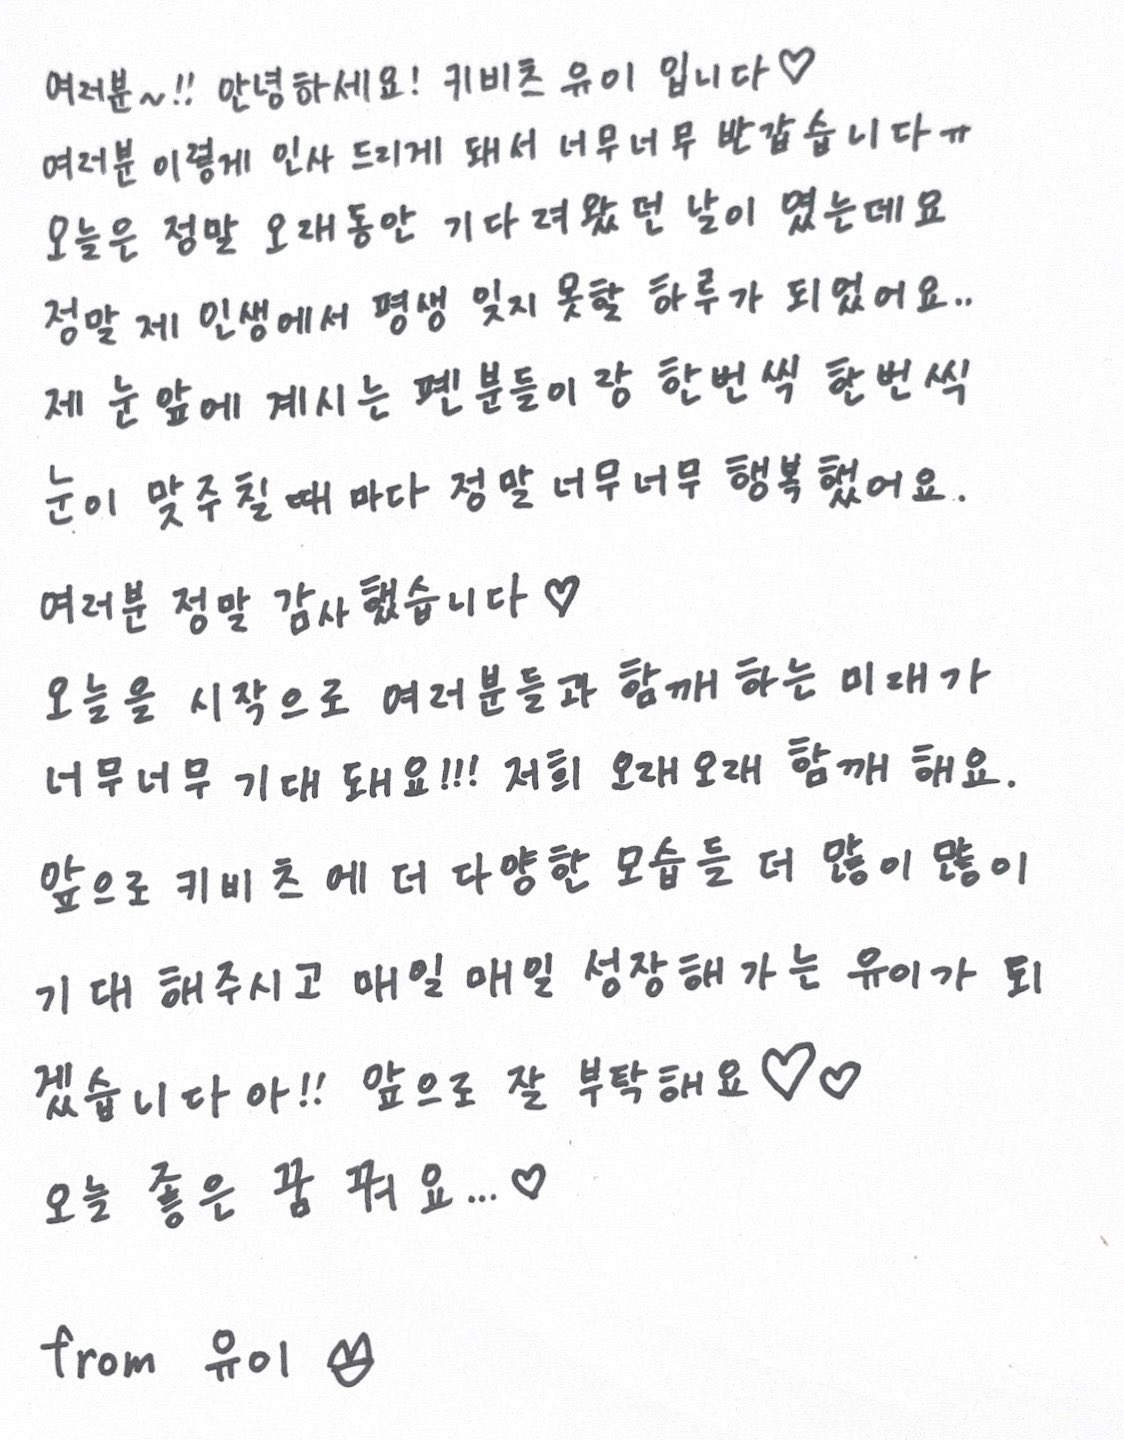 여러분~!! 안녕하세요! 키비츠 유이 입니다♡
여러분 이렇게 인사 드리게 돼서 너무너무 반갑습니다ㅠ
오늘은 정말 오래동안 기다려왔던 날이 였는데요
정말 제 인생에서 평생 잊지 못할 하루가 되었어요..
제 눈 앞에 계시는 펜분들이랑 한번씩 한번씩
눈이 맞주칠 때 마다 정말 너무너무 행복했어요.
여러분 정말 감사했습니다♡
오늘을 시작으로 여러분들과 함깨 하는 미래가
너무너무 기대 돼요!!! 저희 오래오래 함깨 해요.
앞으로 키비츠에 더 다양한 모습들 더 많이 많이
기대 해주시고 매일매일 성장해가는 유이가 되
겠습니다아!! 앞으로 잘 부탁해요♡♡
오늘 좋은 꿈 꿔요...♡
from 유이